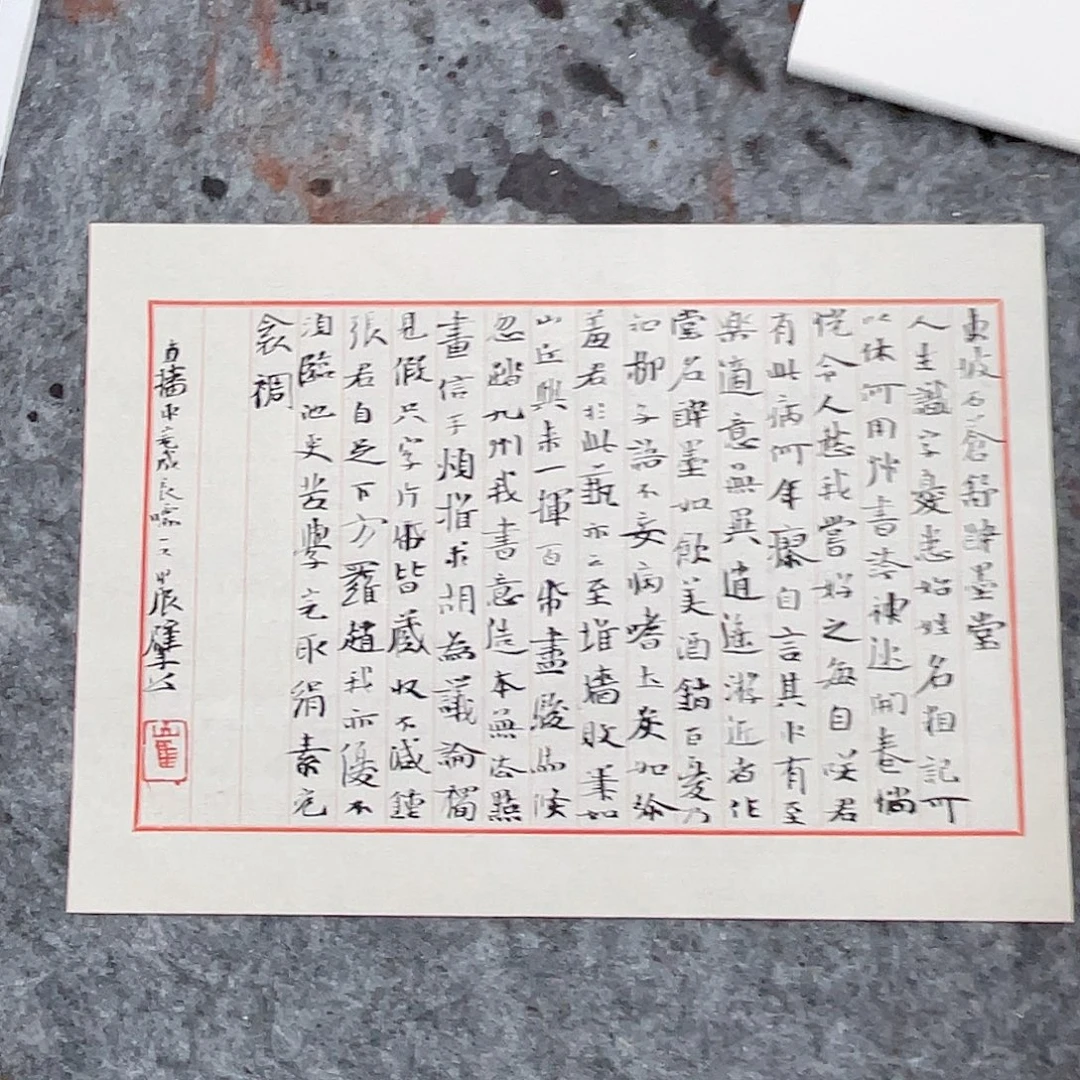 東坡石蒼舒醉墨堂
人生識字憂患始姓名粗記可
以休何用艸書誇神速開卷惝
恍令人愁我嘗好之每自咲君
有此病何年瘳自言其中有至
樂適意無異逍遙游近者作
堂名醉墨如飲美酒銷百憂乃
知柳子語不妄病嗜土炭如珍
羞君於此藝亦云至堆墻敗筆如
山丘興來一揮百帋盡駿馬倏
忽踏九州我書意造本無法點
畫信手煩推求胡為議論獨
見假只字片帋皆藏收不減鍾
張君自足下方羅趙我亦優不
須臨池更苦學完取絹素充
衾裯
直播中完成 甲辰肇